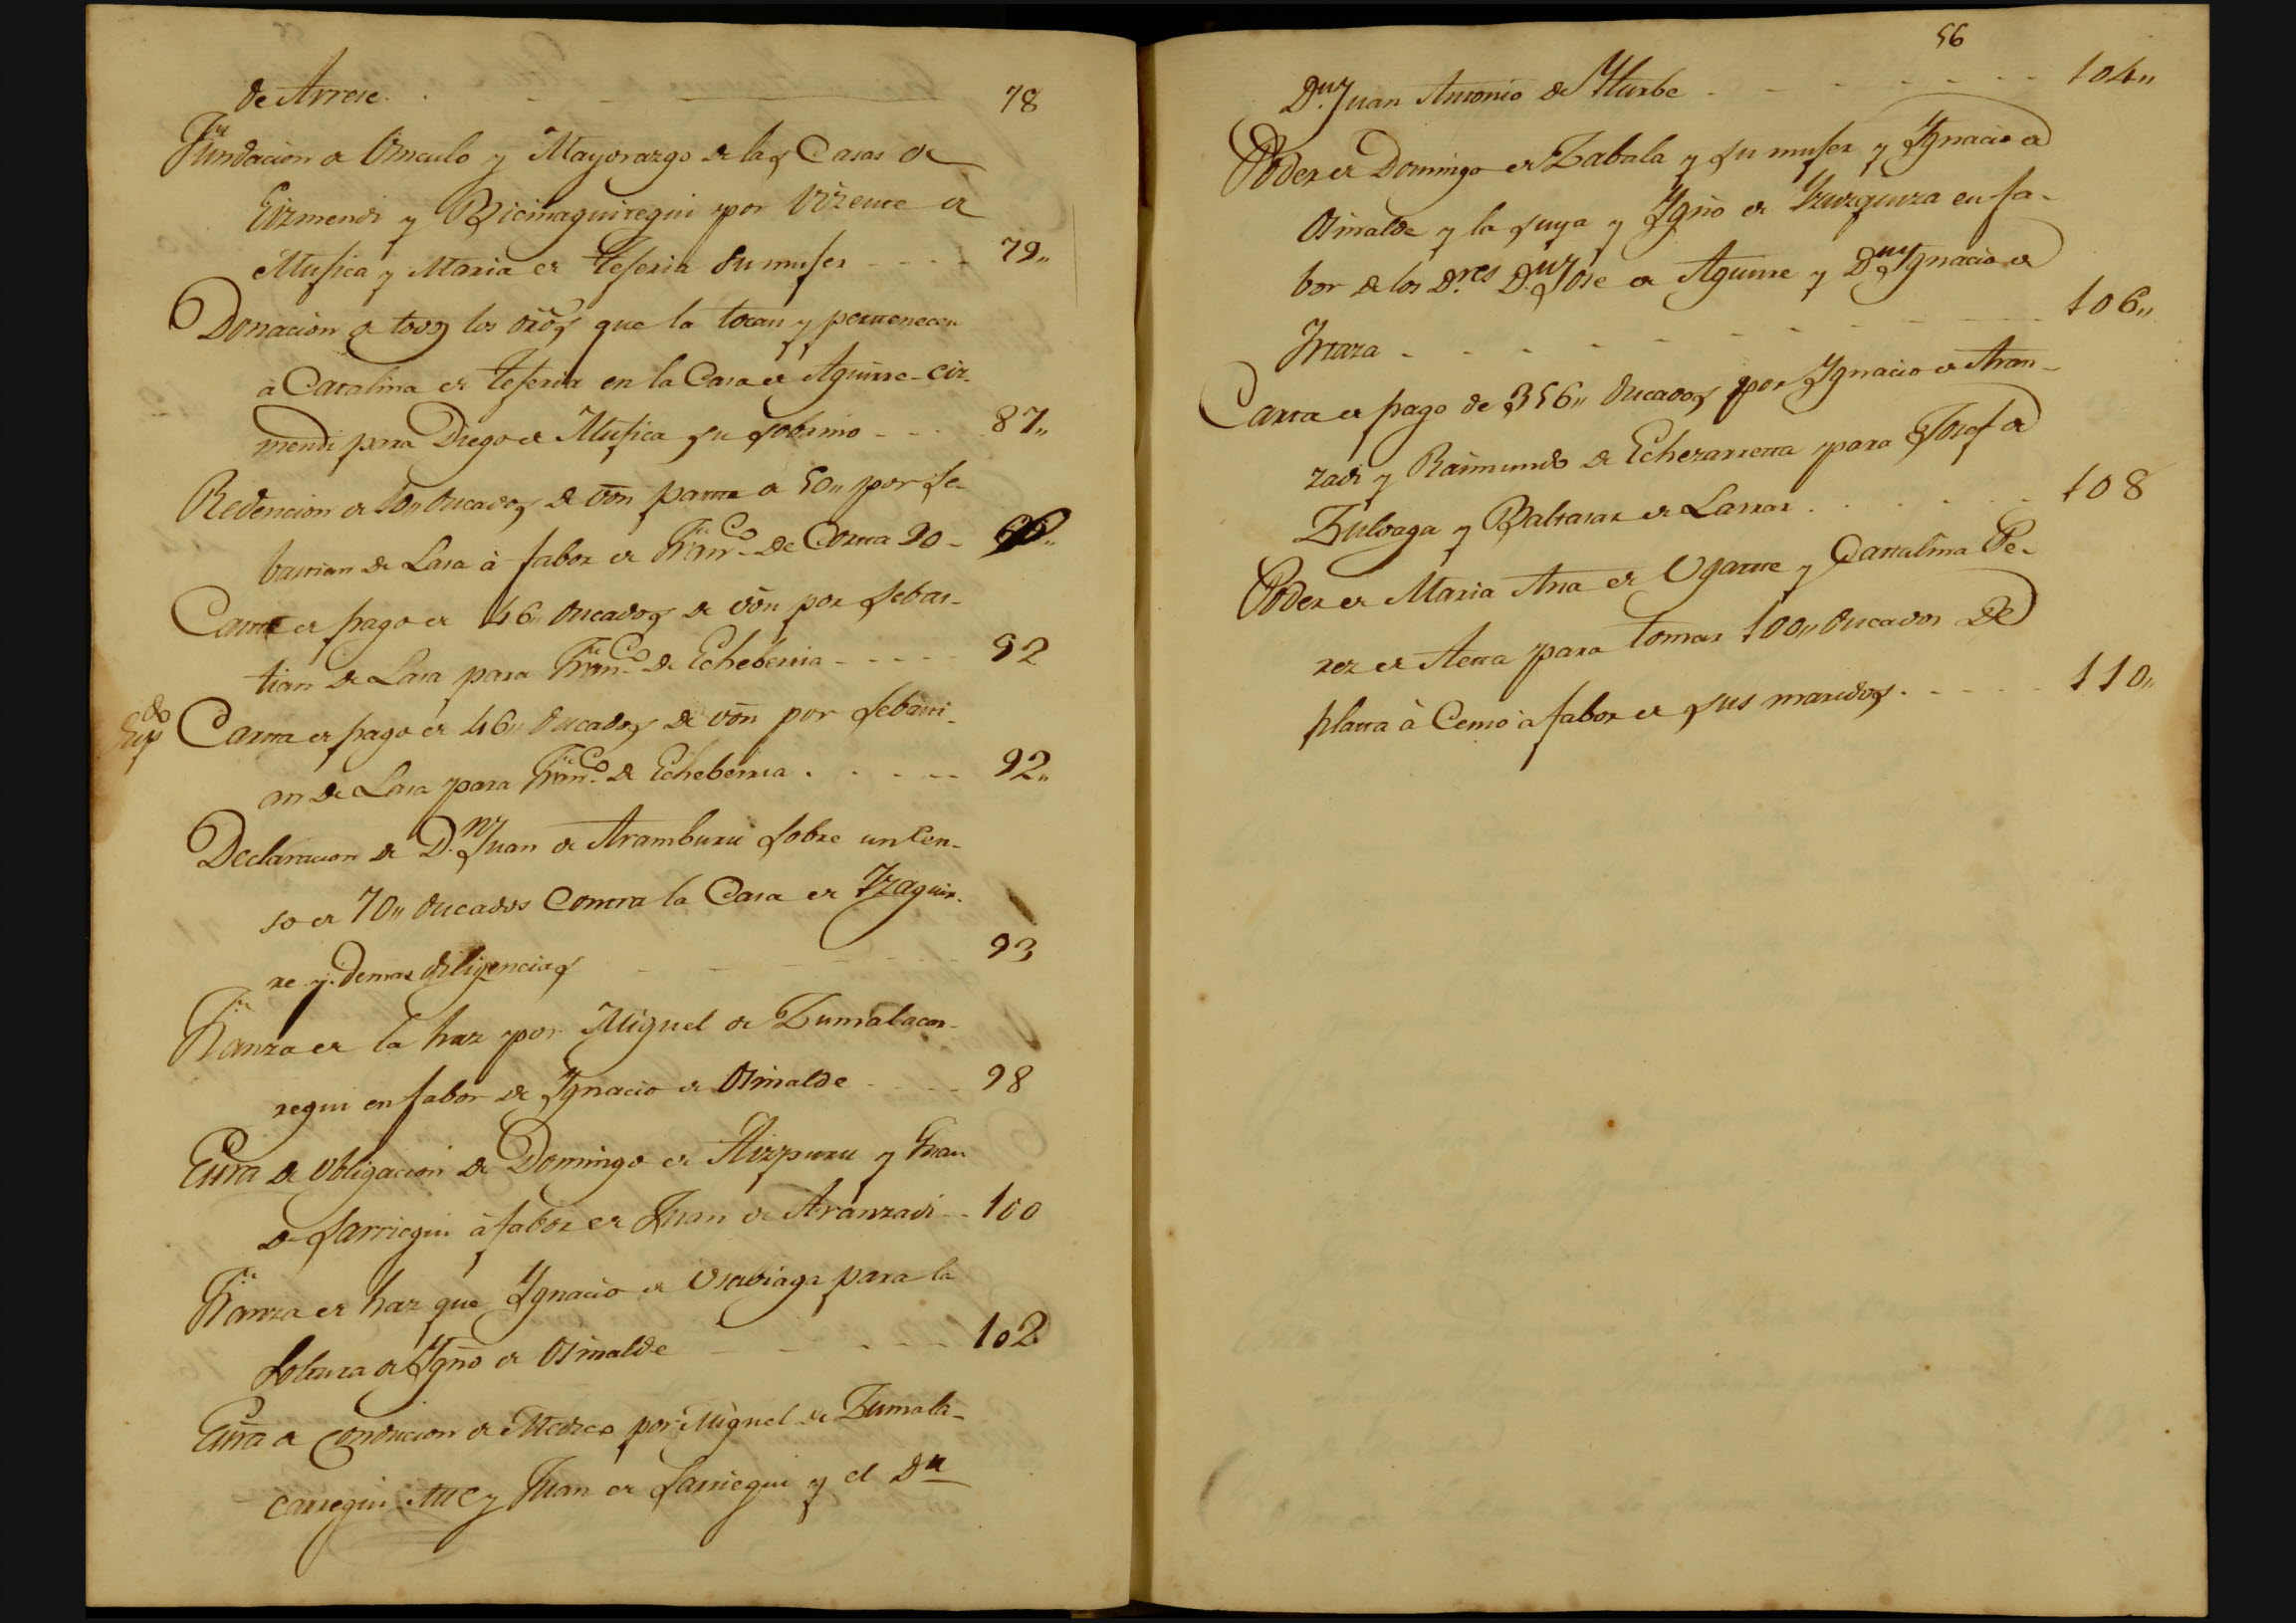 de Arrese. 78
Fundacion de Vinculo y Mayorazgo de las Casas de
Eizmendi y Bicimaguiregui por Vizente de
Mujica y Maria de Tejeria su mujer 79,,
Donacion de todos los dros que la tocan y pertenecen
à Catalina de Tejeria en la Casa de Aguirre-Eiz-
mendi para Diego de Mujica su sobrino 87,,
Redencion de 10,, ducados de von parte de 50,, por Se-
bastian de Lasa à fabor de Franco. de Corta 90
Carta de pago de 46,, ducados de von por Sebas-
tian de Lasa para Franco. de Echeberria 92
Dup.do Carta de pago de 46,, ducados de von por Sebasti-
an de Lasa para Franco. de Echeberria 92,,
Declaracion de D.n Juan de Aramburu sobre un Cen-
so de 70,, ducados Contra la Casa de Yzaguir-
re y demas diligencias 93
Fianza de la haz por Miguel de Zumalacar-
regui en fabor de Ygnacio de Osinalde 98
Escra de obligacion de Domingo de Aizpuru y Juan
de Sarriegui à fabor de Juan de Aranzadi 100
Fianza de haz que Ygnacio de Usabiaga para la
soltura de Ygno de Osinalde 102
Escra de Conducion de Medico por Miguel de Zumala-
carregui Alce y Juan de Sarriegui y el Dn
56
D.n Juan Antonio de Yturbe 104,,
Poder de Domingo de Zabala y su mujer y Ygnacio de
Osinalde y la suya y Ygno de Yzurquiza en fa-
bor de los D.res D.n Jose de Aguirre y D.n Ygnacio de
Yraza 106,,
Carta de pago de 356,, ducados por Ygnacio de Aran-
zadi y Raimundo de Echezarreta para Josef de
Zuloaga y Baltasar de Larrar 108
Poder de Maria Ana de Ugarte y Catalina Pe-
rez de Aerra para tomar 100,, ducados de
plata à Censo à fabor de sus maridos 110,,